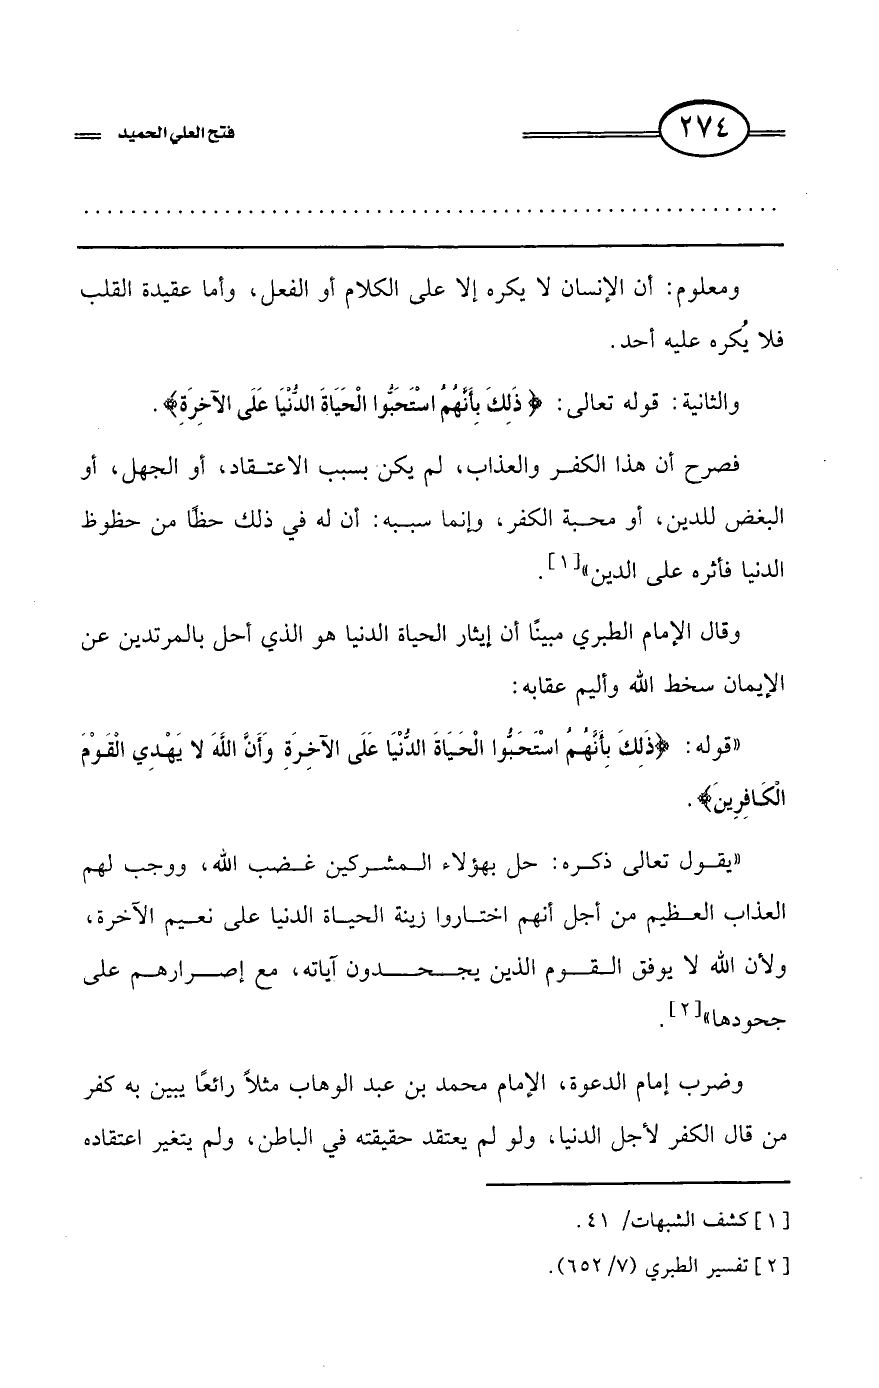 ٢٧٤
فتح العلي الحميد
ومعلوم: أن الإنسان لا يكره إلا على الكلام أو الفعل، وأما عقيدة القلب
فلا يُكره عليه أحد.
والثانية: قوله تعالى: ﴿ ذَلِكَ بِأَنَّهُمُ اسْتَحَبُّوا الْحَيَاةَ الدُّنْيَا عَلَى الآخِرَةِ﴾.
فصرح أن هذا الكفر والعذاب، لم يكن بسبب الاعتقاد، أو الجهل، أو
البغض للدين، أو محبة الكفر، وإنما سببه: أن له في ذلك حظًا من حظوظ
الدنيا فأثره على الدين»[١].
وقال الإمام الطبري مبينًا أن إيثار الحياة الدنيا هو الذي أحل بالمرتدين عن
الإيمان سخط الله وأليم عقابه:
«قوله: ﴿ذَلِكَ بِأَنَّهُمُ اسْتَحَبُّوا الْحَيَاةَ الدُّنْيَا عَلَى الآخِرَةِ وَأَنَّ اللَّهَ لا يَهْدِي الْقَوْمَ
الْكَافِرِينَ﴾.
«يقول تعالى ذكره: حل بهؤلاء المشركين غضب الله، ووجب لهم
العذاب العظيم من أجل أنهم اختاروا زينة الحياة الدنيا على نعيم الآخرة،
ولأن الله لا يوفق القوم الذين يجحدون آياته، مع إصرارهم على
جحودها»[٢].
وضرب إمام الدعوة، الإمام محمد بن عبد الوهاب مثلاً رائعًا يبين به كفر
من قال الكفر لأجل الدنيا، ولو لم يعتقد حقيقته في الباطن، ولم يتغير اعتقاده
[١] كشف الشبهات/ ٤١.
[٢] تفسير الطبري (٧/ ٦٥٢).